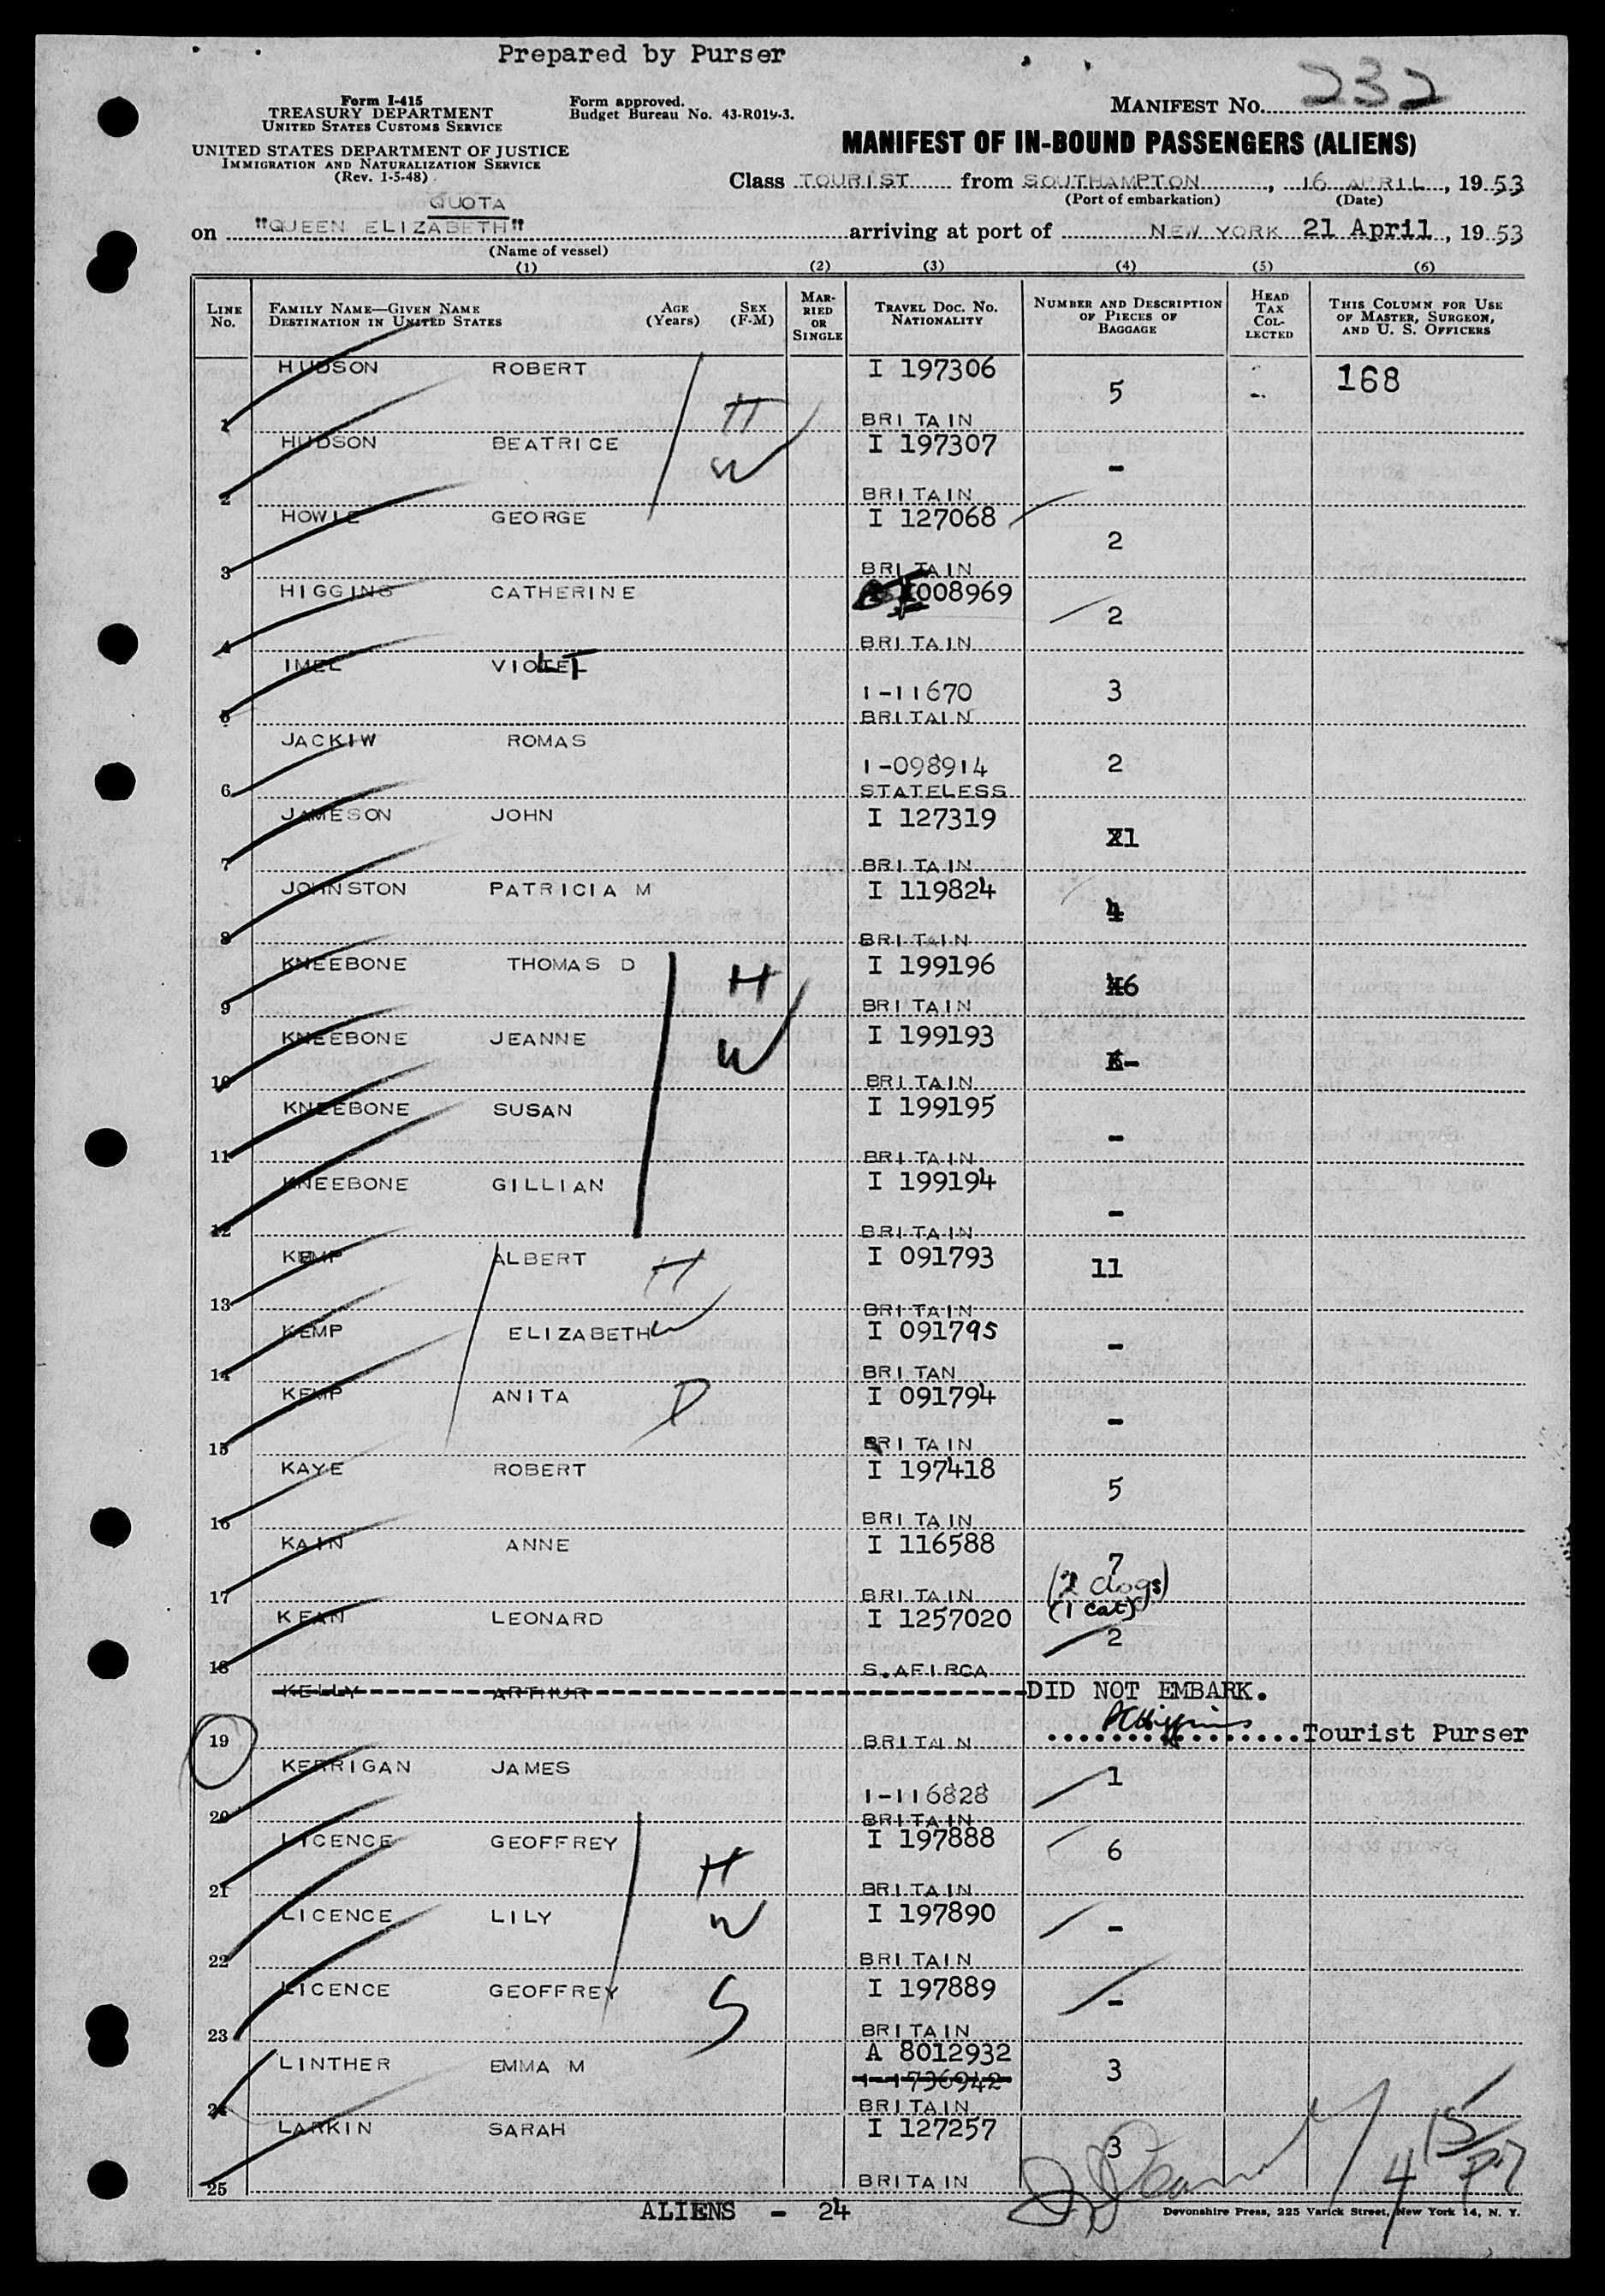 Prepared by Purser
Form I-415
TREASURY DEPARTMENT
UNITED STATES CUSTOMS SERVICE
Form approved.
Budget Bureau No. 43-R019-3.
MANIFEST NO. 232
UNITED STATES DEPARTMENT OF JUSTICE
IMMIGRATION AND NATURALIZATION SERVICE
(Rev. 1-5-48)
MANIFEST OF IN-BOUND PASSENGERS (ALIENS)
Class TOURIST from SOUTHAMPTON, 16 APRIL, 1953
(Port of embarkation) (Date)
QUOTA
on "QUEEN ELIZABETH" arriving at port of NEW YORK 21 April, 1953
(Name of vessel)
(1) (2) (3) (4) (5) (6)
LINE No. FAMILY NAME—GIVEN NAME DESTINATION IN UNITED STATES AGE (Years) SEX (F-M) MARRIED OR SINGLE TRAVEL DOC. NO. NATIONALITY NUMBER AND DESCRIPTION OF PIECES OF BAGGAGE HEAD TAX COLLECTED THIS COLUMN FOR USE OF MASTER, SURGEON, AND U. S. OFFICERS
1 HUDSON ROBERT H I 197306 BRITAIN 5 - 168
2 HUDSON BEATRICE W I 197307 BRITAIN -
3 HOWIE GEORGE I 127068 BRITAIN 2
4 HIGGINS CATHERINE I 008969 BRITAIN 2
5 IMEL VIOLET 1-11670 BRITAIN 3
6 JACKIW ROMAS 1-098914 STATELESS 2
7 JAMESON JOHN I 127319 BRITAIN 1
8 JOHNSTON PATRICIA M I 119824 BRITAIN 4
9 KNEEBONE THOMAS D H I 199196 BRITAIN 6
10 KNEEBONE JEANNE W I 199193 BRITAIN -
11 KNEEBONE SUSAN I 199195 BRITAIN -
12 KNEEBONE GILLIAN I 199194 BRITAIN -
13 KEMP ALBERT H I 091793 BRITAIN 11
14 KEMP ELIZABETH W I 091795 BRITAN -
15 KEMP ANITA D I 091794 BRITAIN -
16 KAYE ROBERT I 197418 BRITAIN 5
17 KAIN ANNE I 116588 BRITAIN 7
(2 dogs)
(1 cat)
18 KEAN LEONARD I 1257020 S.AFIRCA 2
19 KELLY ARTHUR BRITAIN DID NOT EMBARK.
Tourist Purser
20 KERRIGAN JAMES 1-116828 BRITAIN 1
21 LICENCE GEOFFREY H I 197888 BRITAIN 6
22 LICENCE LILY W I 197890 BRITAIN -
23 LICENCE GEOFFREY S I 197889 BRITAIN -
24 LINTHER EMMA M A 8012932 1-1736942 BRITAIN 3
25 LARKIN SARAH I 127257 BRITAIN 3
ALIENS - 24
Devonshire Press, 225 Varick Street, New York 14, N. Y.